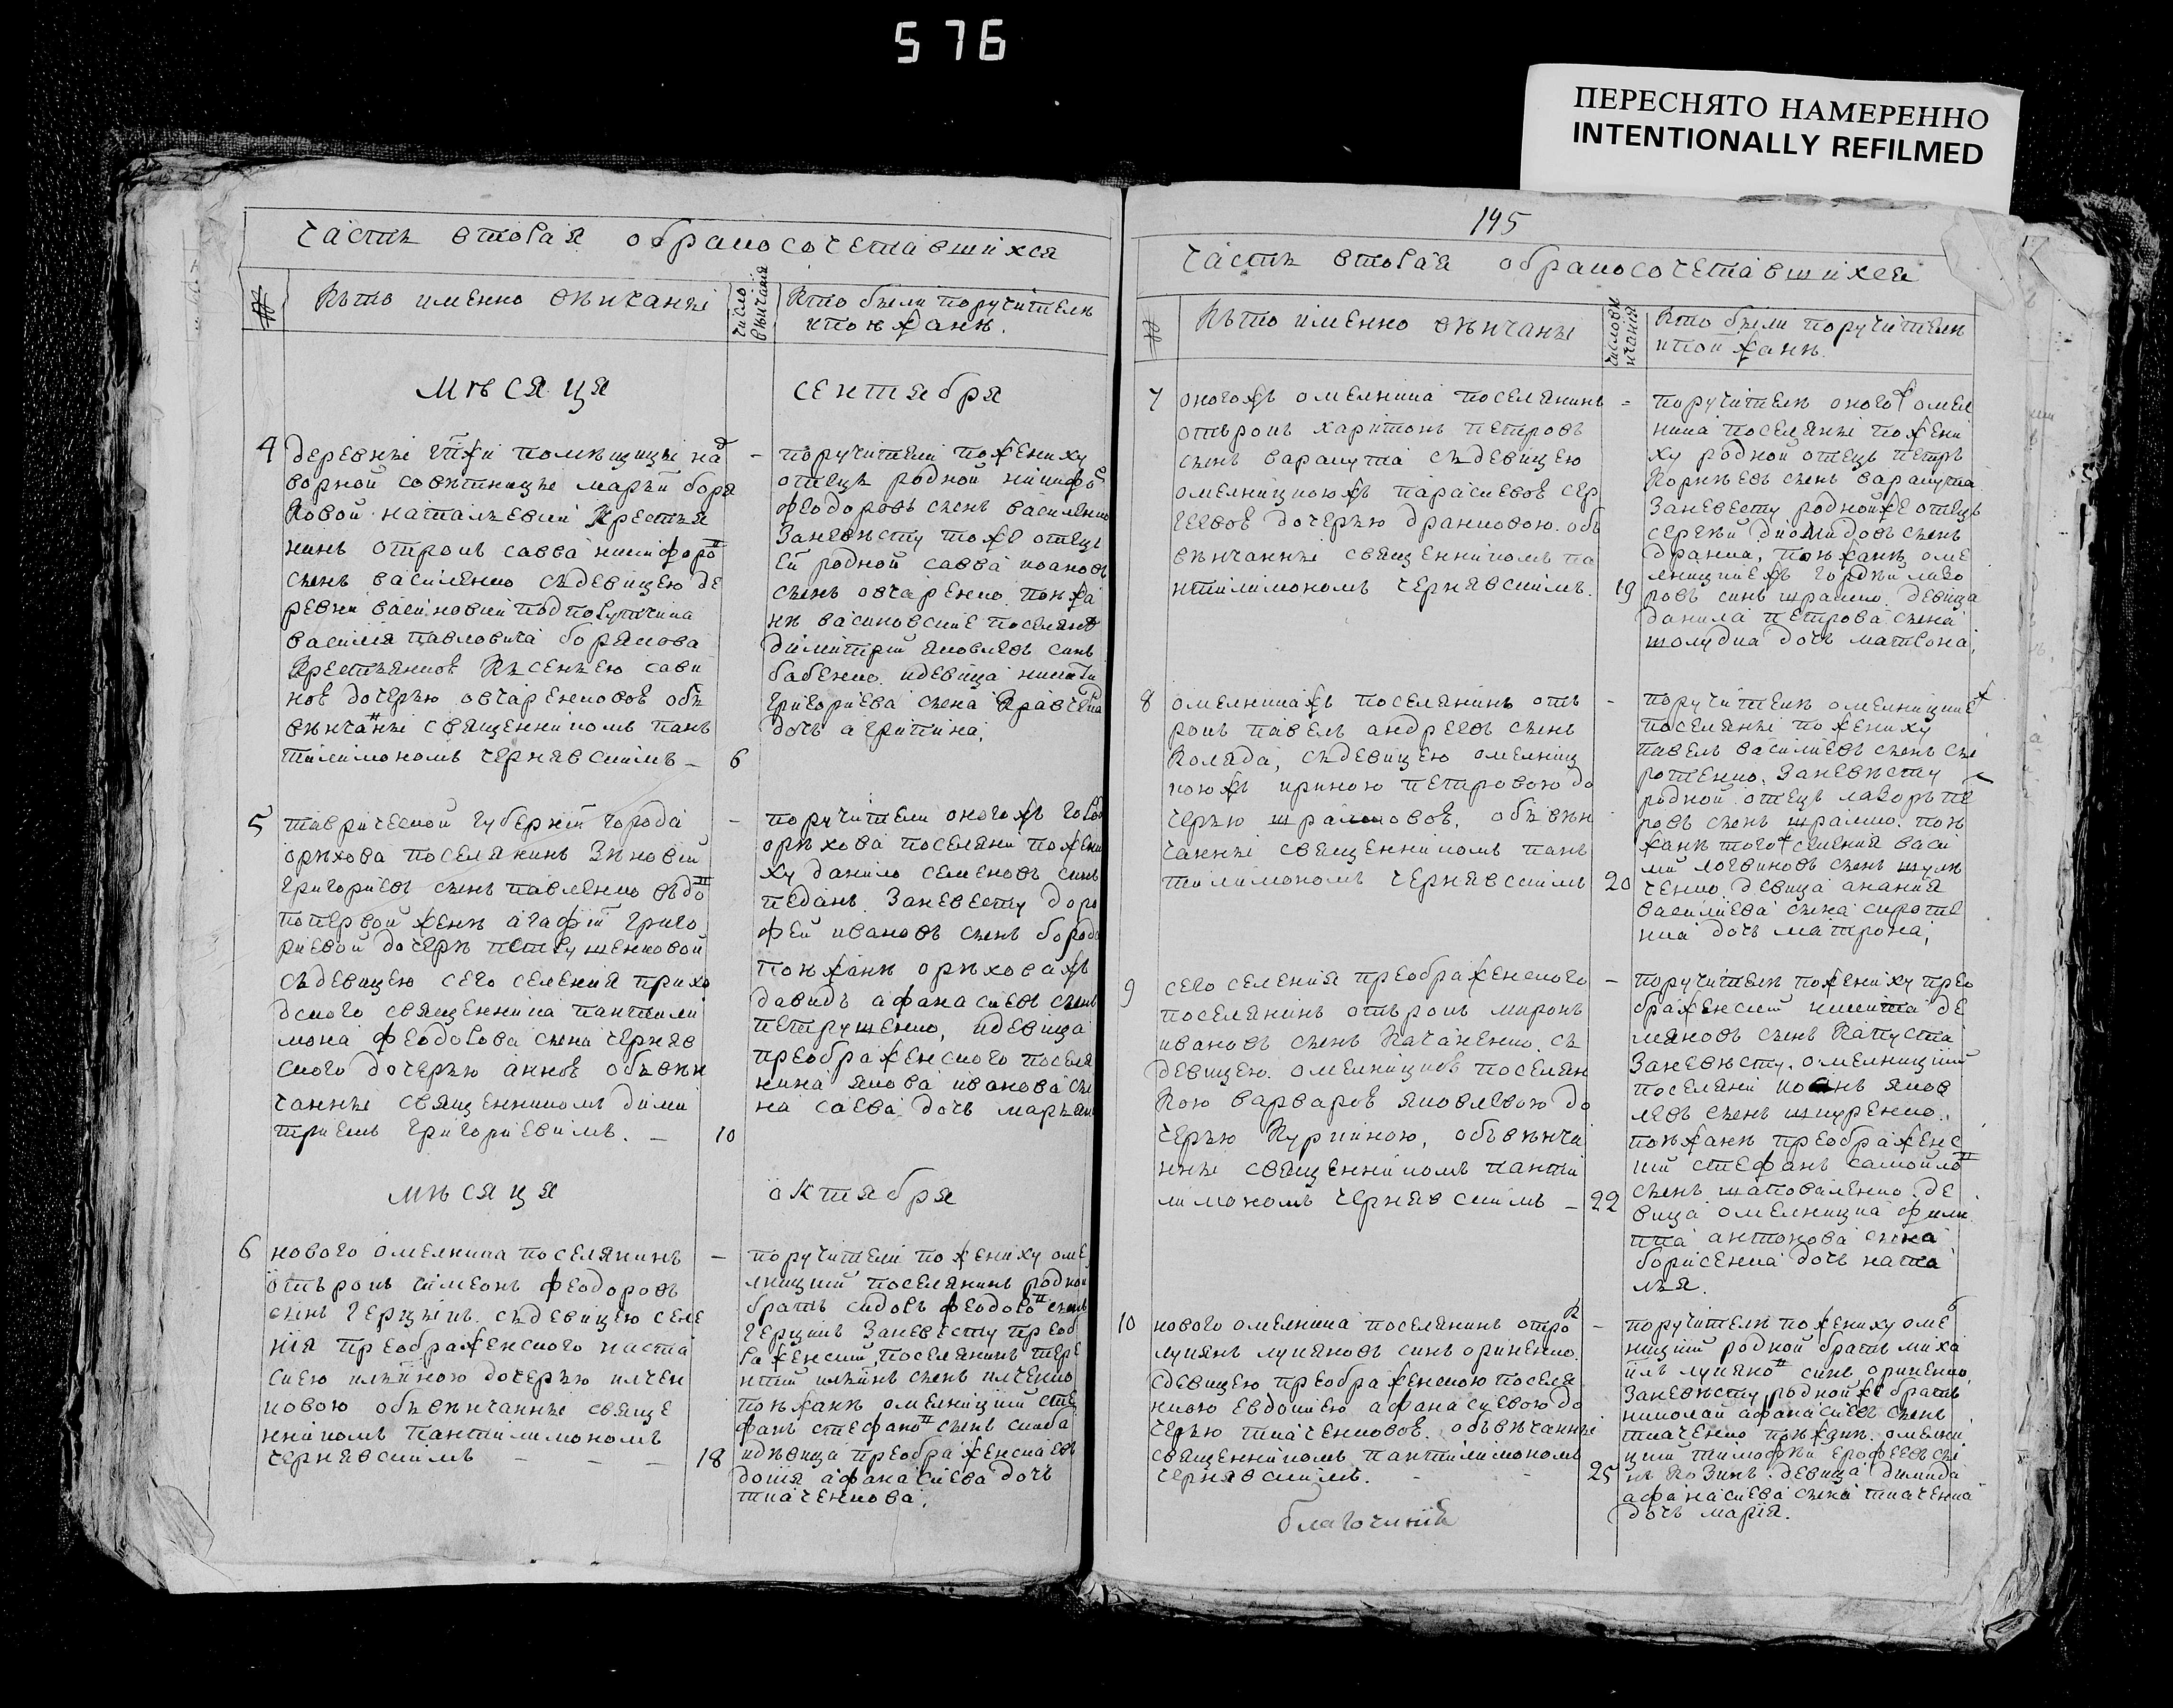 576
ПЕРЕСНЯТО НАМЕРЕННО
INTENTIONALLY REFILMED
Часть вторая обракосочетавшихся
№
Кьто именно вѣнчаны
число вѣнчания
Кто были поручители
ипоѣжанѣ.
мѣсяца
сентября
4
деревни помѣщицы над
ворной совѣтницы марьи боря
ковой наталъевки крестъя
нинъ отрокъ савва никифоро
сынъ василенко съдевицею де
ревни васиновки подпоручика
василия павловича борякова
крестъянкоѣ Къ сенъею сави
ноѣ дочеръю овчаренковоѣ объ
вѣнчаны священникомъ пант
тилимономъ чернявскимъ –
6
– поручители пожениху
отецъ родной никифо
феодоровъ сынъ василенко
Заневѣсту тожѣ отецъ
ей родной савва иоановъ
сынъ овчаренко. поѣжа
нѣ васиновские поселяне
димитрий яковлевъ синъ
бабенко. идевица никити
григориева сына кравченка
дочь агрипина,
5
таврической губернии города
орѣхова поселянинъ Зѣновий
григориевъ сынъ павленко въдо
попервой женѣ агафии григо
риевой дочерѣ петрушенковой
съдевицею сего селения прихо
дского священника пантили
мона феодорова сына черняв
ского дочеръю анноѣ объвѣн
чанны священникомъ дими
триемъ григориевимъ. –
10
– поручители оногожъ горо
орѣхова поселяни пожени
ху данило семеновъ синъ
педань. Заневесту доро
фей ивановъ сынъ бородо
поѣжанѣ орѣховажъ
давидъ афанасиевъ сынъ
петрушенко, идевица
преображенского поселя
нина якова иванова сы
на саева дочь маръян
мѣсяца
октября
6
нового омелника поселянинъ
отърокъ симеонъ феодоровъ
синъ герцыкъ. съдевицею селе
ния преображенского наста
сиею илъиною дочеръю илчен
ковою объвѣнчанны свяще
нникомъ пантилимономъ
чернявскимъ – – –
18
– поручители пожениху оме
лницкий поселянинъ родной
братъ сидоръ феодоро сынъ
герцикъ Заневесту преоб
раженский поселянинъ тере
нтий илъинъ сынъ илченко
поѣжанѣ омелницкий сте
фанъ стефано сынъ скиба
идѣвица преображенска ев
докия афанасиева дочь
ткаченкова.
195
Часть вторая обракосочетавшихся
№
Кьто именно вѣнчаны
число вѣнчания
Кто были поручителѣ
ипоижанѣ.
7
оногожъ омелника поселянинъ
отърокъ харитонъ петровъ
сынъ варакута съдевицею
омелницкоюжъ параскевоѣ сер
геевоѣ дочеръю дранковою. объ
вѣнчанны священникомъ па
нтилимономъ чернявскимъ.
19
– поручителѣ оногож омел
ника поселяны пожени
ху родной отецъ петръ
Корнѣевъ сынъ варакута
Заневесту родной же отецъ
сергѣй диомидовъ сынъ
дранка, поѣжанѣ оме
лницкиежъ гордѣй лаво
ровъ синъ шрамко. девица
данила петрова сына
шолудка дочь матрона,
8
омелникажъ поселянинъ отъ
рокъ павелъ андреевъ сынъ
Коляда, съдевицею омелниц
коюжъ ириною петровою до
черъю шрамковоѣ. объвѣн
чанны священникомъ пант
тилимономъ чернявскимъ
20
– поручителѣ омелницкие
поселяны пожениху
павелъ василиевъ сынъ си
ротенко. Заневѣсту
родной отецъ лаворъ пе
ровъ сынъ шрамко. поѣ
жанѣ тогож селения васи
лий логвиновъ сынъ шулѣ
ченко. девица анания
василиева сына сироте
нка дочь матрона,
9
сего селения преображенского
поселянинъ отърокъ миронъ
ивановъ сынъ Качаненко. съ
девицею. омелницкоѣ поселян
кою варвароѣ яковлевою до
черъю Куркиною, объвѣнча
нны священникомъ панти
лимономъ чернявскимъ –
22
– поручителѣ пожениху прео
браженский никита де
мяновъ сынъ Капуста
Заневѣсту. омелницкий
поселяни яков
левъ сынъ шкуренко.
поѣжанѣ преображенс
кий стефанъ самойло
сынъ шаповаленко. де
вица омелницка фили
ппа антонова сына
борисенка дочь ната
лья.
10
нового омелника поселянинъ отрок
лукянъ лукяновъ синъ ориненко.
сдевицею преображенскою поселя
нкою евдокиею афанасиевою до
черъю ткаченковоѣ. объвѣнчанны
священникомъ пантилимономъ
чернявскимъ.
25
– поручителѣ пожениху оме
ницкий родной братъ миха
илъ лукяно синъ ориненко.
Заневѣсту роднойже братъ
николай афанасиевъ сынъ
ткаченко поѣжанѣ. омелни
цкий тимофѣй ерофеевъ сы
нъ Козинъ. девица демида
афанасиева сына ткаченка
дочь мария.
благочинний